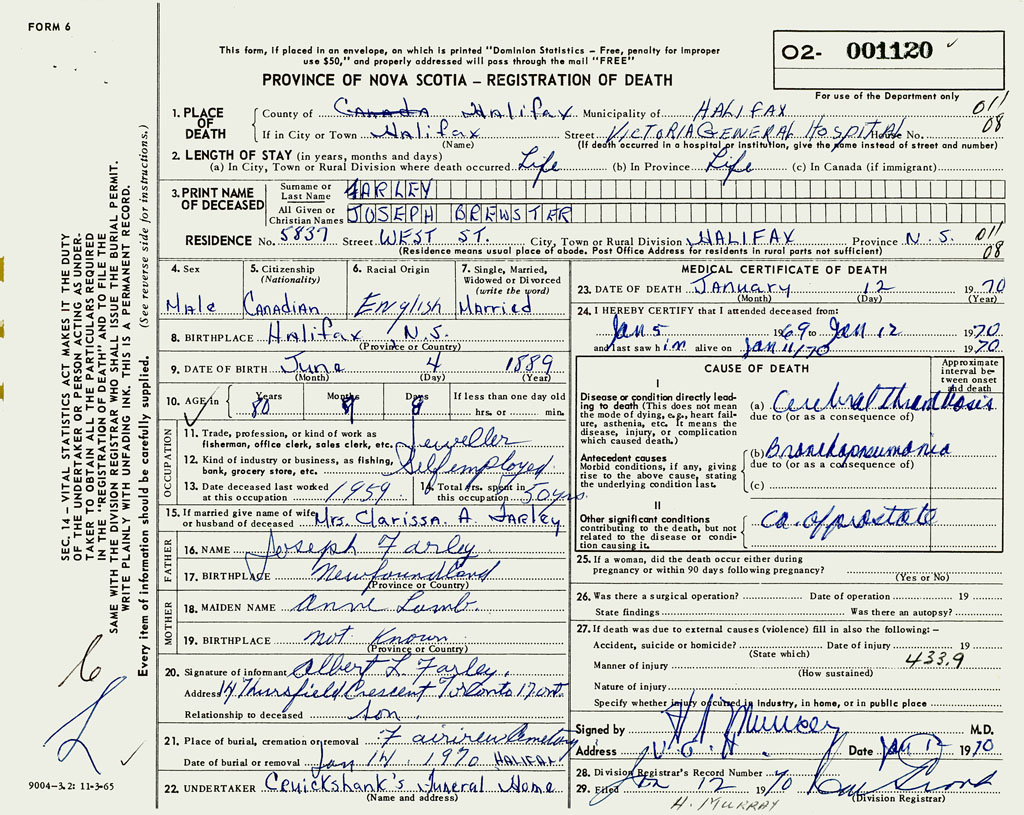 FORM 6
This form, if placed in an envelope, on which is printed "Dominion Statistics – Free, penalty for improper
use $50," and properly addressed will pass through the mail "FREE"
PROVINCE OF NOVA SCOTIA – REGISTRATION OF DEATH
O2- 001120
For use of the Department only
1. PLACE OF DEATH County of Canada Halifax Municipality of HALIFAX 011
If in City or Town Halifax Street VICTORIA GENERAL HOSPITAL House No. 08
(Name) (If death occurred in a hospital or institution, give the name instead of street and number)
2. LENGTH OF STAY (in years, months and days)
(a) In City, Town or Rural Division where death occurred Life (b) In Province Life (c) In Canada (if immigrant)
3. PRINT NAME OF DECEASED Surname or Last Name FARLEY
All Given or Christian Names JOSEPH BREWSTER
RESIDENCE No. 5837 Street WEST ST. City, Town or Rural Division HALIFAX Province N.S. 011
(Residence means usual place of abode. Post Office Address for residents in rural parts not sufficient) 08
4. Sex 5. Citizenship (Nationality) 6. Racial Origin 7. Single, Married, Widowed or Divorced (write the word)
Male Canadian English Married
8. BIRTHPLACE Halifax N.S.
(Province or Country)
9. DATE OF BIRTH June 4 1889
(Month) (Day) (Year)
10. AGE in Years Months Days If less than one day old
80 8 hrs. or min.
OCCUPATION
11. Trade, profession, or kind of work as
fisherman, office clerk, sales clerk, etc. Jeweller
12. Kind of industry or business, as fishing,
bank, grocery store, etc. Self employed
13. Date deceased last worked
at this occupation 1959
14. Total yrs. spent in
this occupation 50 yrs.
15. If married give name of wife
or husband of deceased Mrs. Clarissa A. Farley
FATHER
16. NAME Joseph Farley
17. BIRTHPLACE Newfoundland
(Province or Country)
MOTHER
18. MAIDEN NAME Anne Lamb.
19. BIRTHPLACE not Known
(Province or Country)
20. Signature of informant Albert L. Farley.
Address 14 Thursfield Crescent Toronto 17 ont.
Relationship to deceased son.
21. Place of burial, cremation or removal Fairview Cemetery
Date of burial or removal Jan 14 1970 HALIFAX
22. UNDERTAKER Cruickshank's Funeral Home
(Name and address)
MEDICAL CERTIFICATE OF DEATH
23. DATE OF DEATH January 12 1970
(Month) (Day) (Year)
24. I HEREBY CERTIFY that I attended deceased from
Jan 5 1969 to Jan 12 1970
and last saw him alive on Jan 11/70 1970
CAUSE OF DEATH
Approximate interval between onset and death
I
Disease or condition directly leading to death (This does not mean
the mode of dying, e.g., heart failure, asthenia, etc. It means the
disease, injury, or complication
which caused death.)
(a) Cerebral Thrombosis
due to (or as a consequence of)
Antecedent causes
Morbid conditions, if any, giving
rise to the above cause, stating
the underlying condition last.
(b) Bronchopneumonia
due to (or as a consequence of)
(c)
II
Other significant conditions
contributing to the death, but not
related to the disease or condition
causing it.
ca. of prostate
25. If a woman, did the death occur either during
pregnancy or within 90 days following pregnancy?
(Yes or No)
26. Was there a surgical operation? Date of operation 19
State findings Was there an autopsy?
27. If death was due to external causes (violence) fill in also the following: –
Accident, suicide or homicide? Date of injury 19
(State which)
Manner of injury 433.9
(How sustained)
Nature of injury
Specify whether injury occurred in industry, in home, or in public place
Signed by M.D.
Address V.G.H. Date Jan 12 1970
28. Division Registrar's Record Number
29. Filed Jan 12 1970
(Division Registrar)
H. MURRAY
SEC. 14 – VITAL STATISTICS ACT MAKES IT THE DUTY
OF THE UNDERTAKER OR PERSON ACTING AS UNDER-
TAKER TO OBTAIN ALL THE PARTICULARS REQUIRED
IN THE "REGISTRATION OF DEATH" AND TO FILE THE
SAME WITH THE DIVISION REGISTRAR WHO SHALL ISSUE THE BURIAL PERMIT.
WRITE PLAINLY WITH UNFADING INK. THIS IS A PERMANENT RECORD.
Every item of information should be carefully supplied. (See reverse side for instructions.)
9004-3.2: 11-3-65